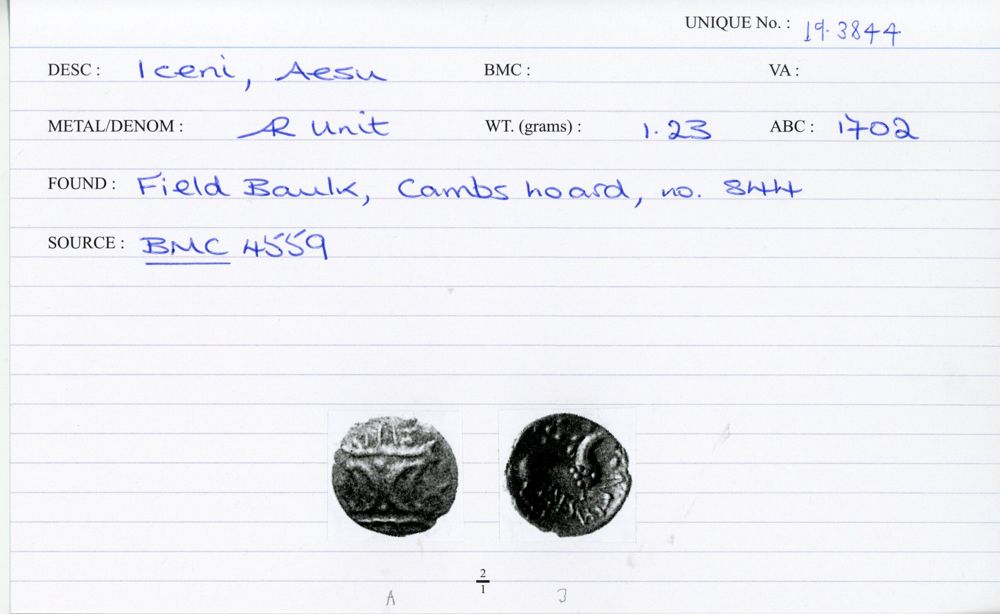 UNIQUE No. : 19.3844
DESC : Iceni, Aesu BMC : VA :
METAL/DENOM : AR Unit WT. (grams) : 1.23 ABC : 1702
FOUND : Field Baulk, Cambs hoard, no. 844
SOURCE : BMC 4559
2
1
A J